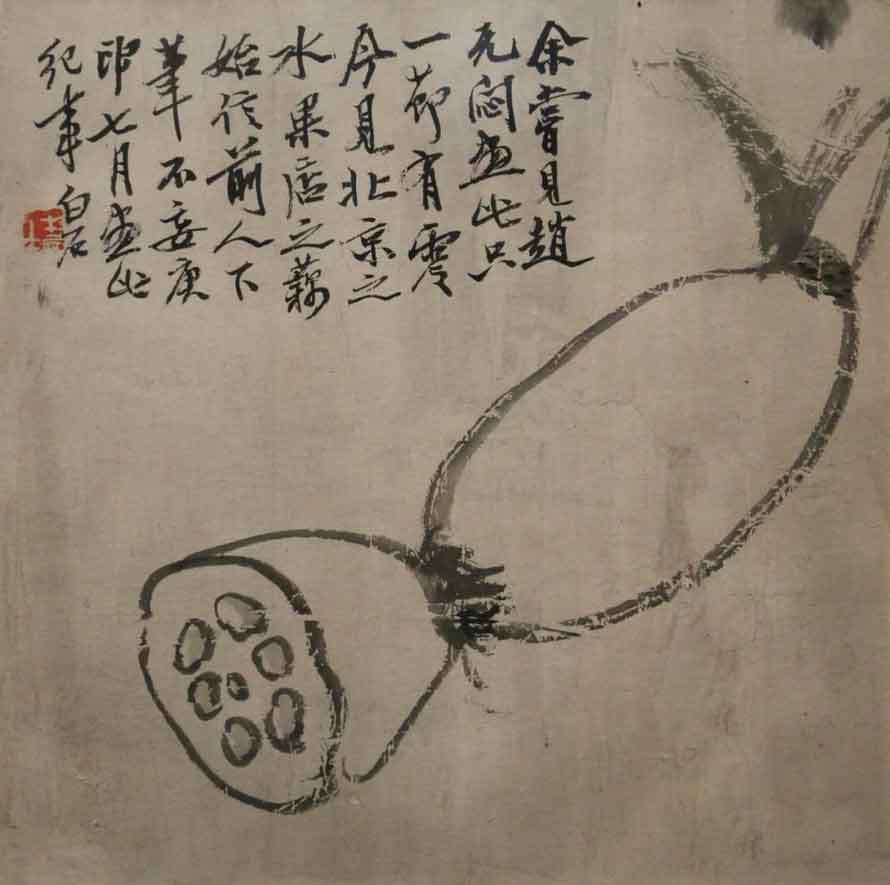 余嘗見趙
无悶畫此只
一節有零
今見北京之
水果店之藕
始信前人下
筆不妄庚
申七月畫此
紀事 白石